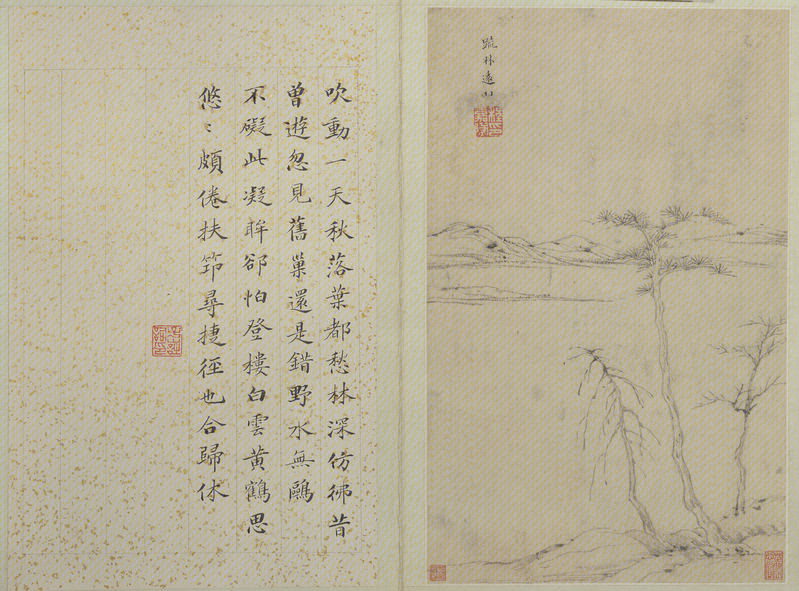 疏林遠山
吹動一天秋落葉都愁林深仿彿昔
曾遊忽見舊巢還是錯野水無鷗
不礙此凝眸郤怕登樓白雲黃鶴思
悠〻頗倦扶筇尋捷徑也合歸休